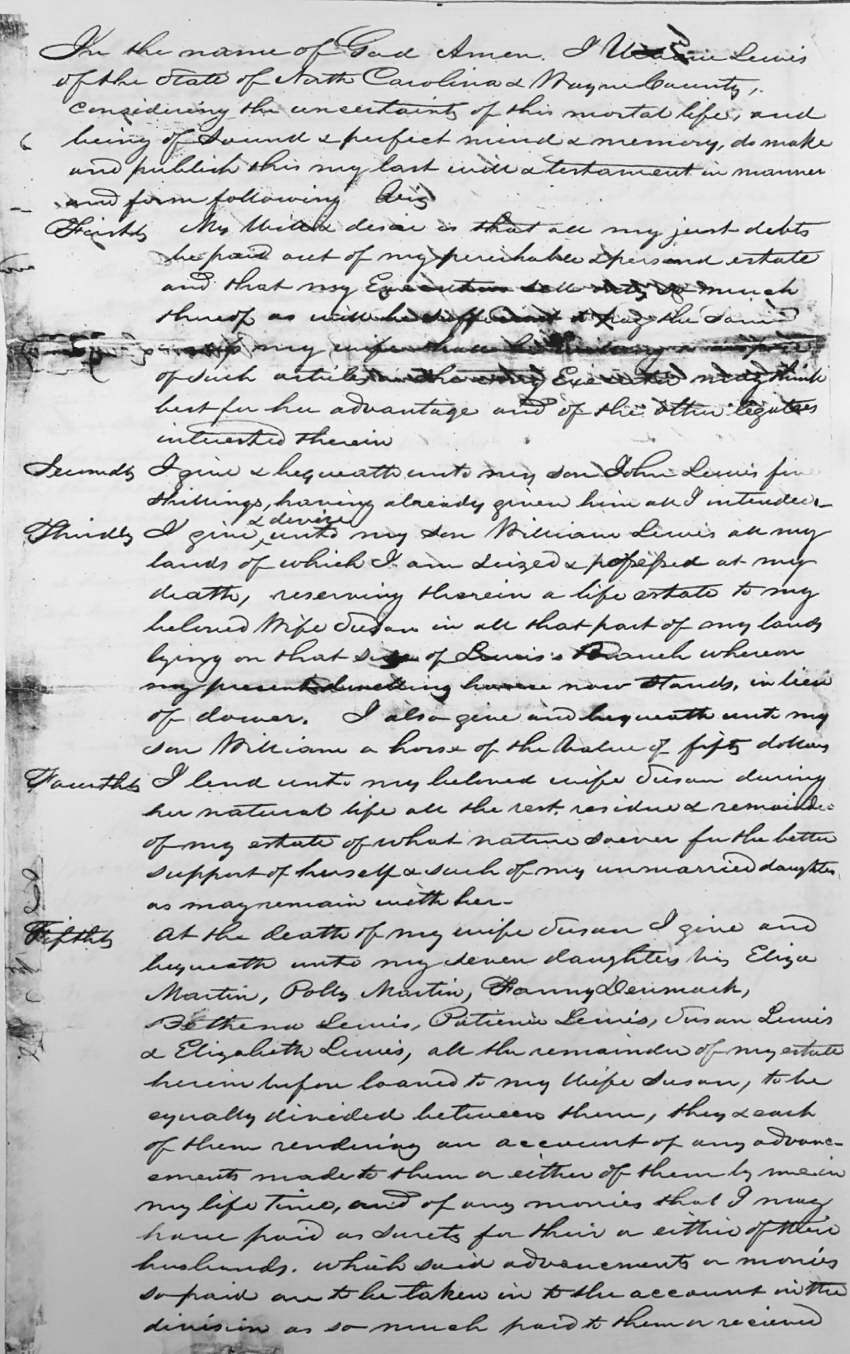 In the name of God Amen. I Lewis
of the State of North Carolina & Wayne County,
considering the uncertainty of this mortal life, and
being of Sound & perfect mind & memory, do make
and publish this my last will & testament in manner
and form following Viz
Firstly My Will & desire is that all my just debts
be paid out of my perishable & personal estate
and that my Executors sell so much
thereof as will be sufficient to pay the same
my wife
of such articles my may think
best for her advantage and of the other legatees
interested therein
Secondly I give & bequeath unto my son John Lewis five
Shillings, having already given him all I intended
Thirdly I give & devise unto my son William Lewis all my
lands of which I am seized & possessed at my
death, reserving therein a life estate to my
beloved Wife Susan in all that part of my lands
lying on that side of Lewis's Branch whereon
my present dwelling house now stands, in lieu
of dower. I also give and bequeath unto my
son William a horse of the Value of fifty dollars
Fourthly I lend unto my beloved wife Susan during
her natural life all the rest, residue & remainder
of my estate of what nature soever for the better
support of herself & such of my unmarried daughters
as may remain with her-
Fifthly At the death of my wife Susan I give and
bequeath unto my seven daughters viz Eliza
Martin, Polly Martin, Fanny Denmark,
Bethena Lewis, Patience Lewis, Susan Lewis
& Elizabeth Lewis, all the remainder of my estate
herein before loaned to my Wife Susan, to be
equally divided between them, they & each
of them rendering an account of any advanc-
ements made to them or either of them by me in
my life time, and of any monies that I may
have paid as surety for their or either of their
husbands. which said advancements or monies
so paid are to be taken in to the account in the
division as so much paid to them or recieved